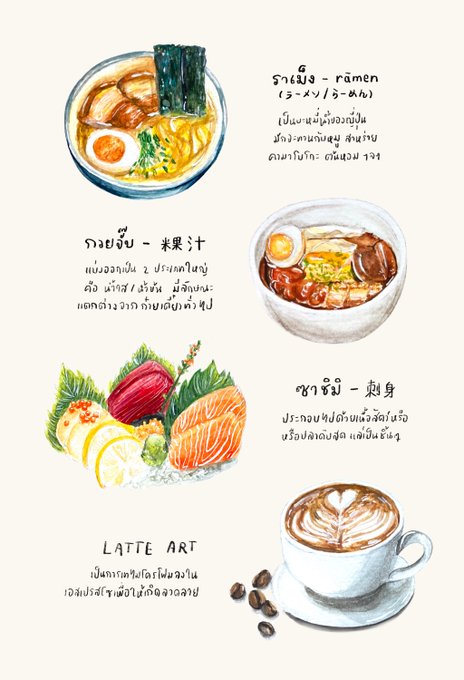 ราเม็ง - rāmen
(ラーメン / らーめん)
เป็นบะหมี่น้ำของญี่ปุ่น
มักจะทานกับหมู สาหร่าย
คามาโบโกะ ต้นหอม ฯลฯ
กวยจั๊บ - 粿汁
แบ่งออกเป็น 2 ประเภทใหญ่
คือ น้ำใส / น้ำข้น มีลักษณะ
แตกต่างจาก ก๋วยเตี๋ยวทั่วไป
ซาชิมิ - 刺身
ประกอบไปด้วยเนื้อสัตว์หรือ
หรือปลาดิบสด แล่เป็นชิ้นๆ
LATTE ART
เป็นการเทไมโครโฟมลงใน
เอสเปรสโซเพื่อให้เกิดลวดลาย